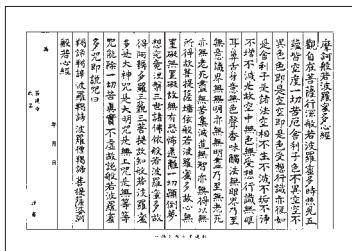 摩訶般若波羅蜜多心經
觀自在菩薩行深般若波羅蜜多時照見五
蘊皆空度一切苦厄舍利子色不異空空不
異色色即是空空即是色受想行識亦復如
是舍利子是諸法空相不生不滅不垢不淨
不增不減是故空中無色無受想行識無眼
耳鼻舌身意無色聲香味觸法無眼界乃至
無意識界無無明亦無無明盡乃至無老死
亦無老死盡無苦集滅道無智亦無得以無
所得故菩提薩埵依般若波羅蜜多故心無
罣礙無罣礙故無有恐怖遠離一切顛倒夢
想究竟涅槃三世諸佛依般若波羅蜜多故
得阿耨多羅三藐三菩提故知般若波羅蜜
多是大神咒是大明咒是無上咒是無等等
咒能除一切苦真實不虛故說般若波羅蜜
多咒即說咒曰
揭諦揭諦波羅揭諦波羅僧揭諦菩提薩婆訶
般若心經
年 月 日